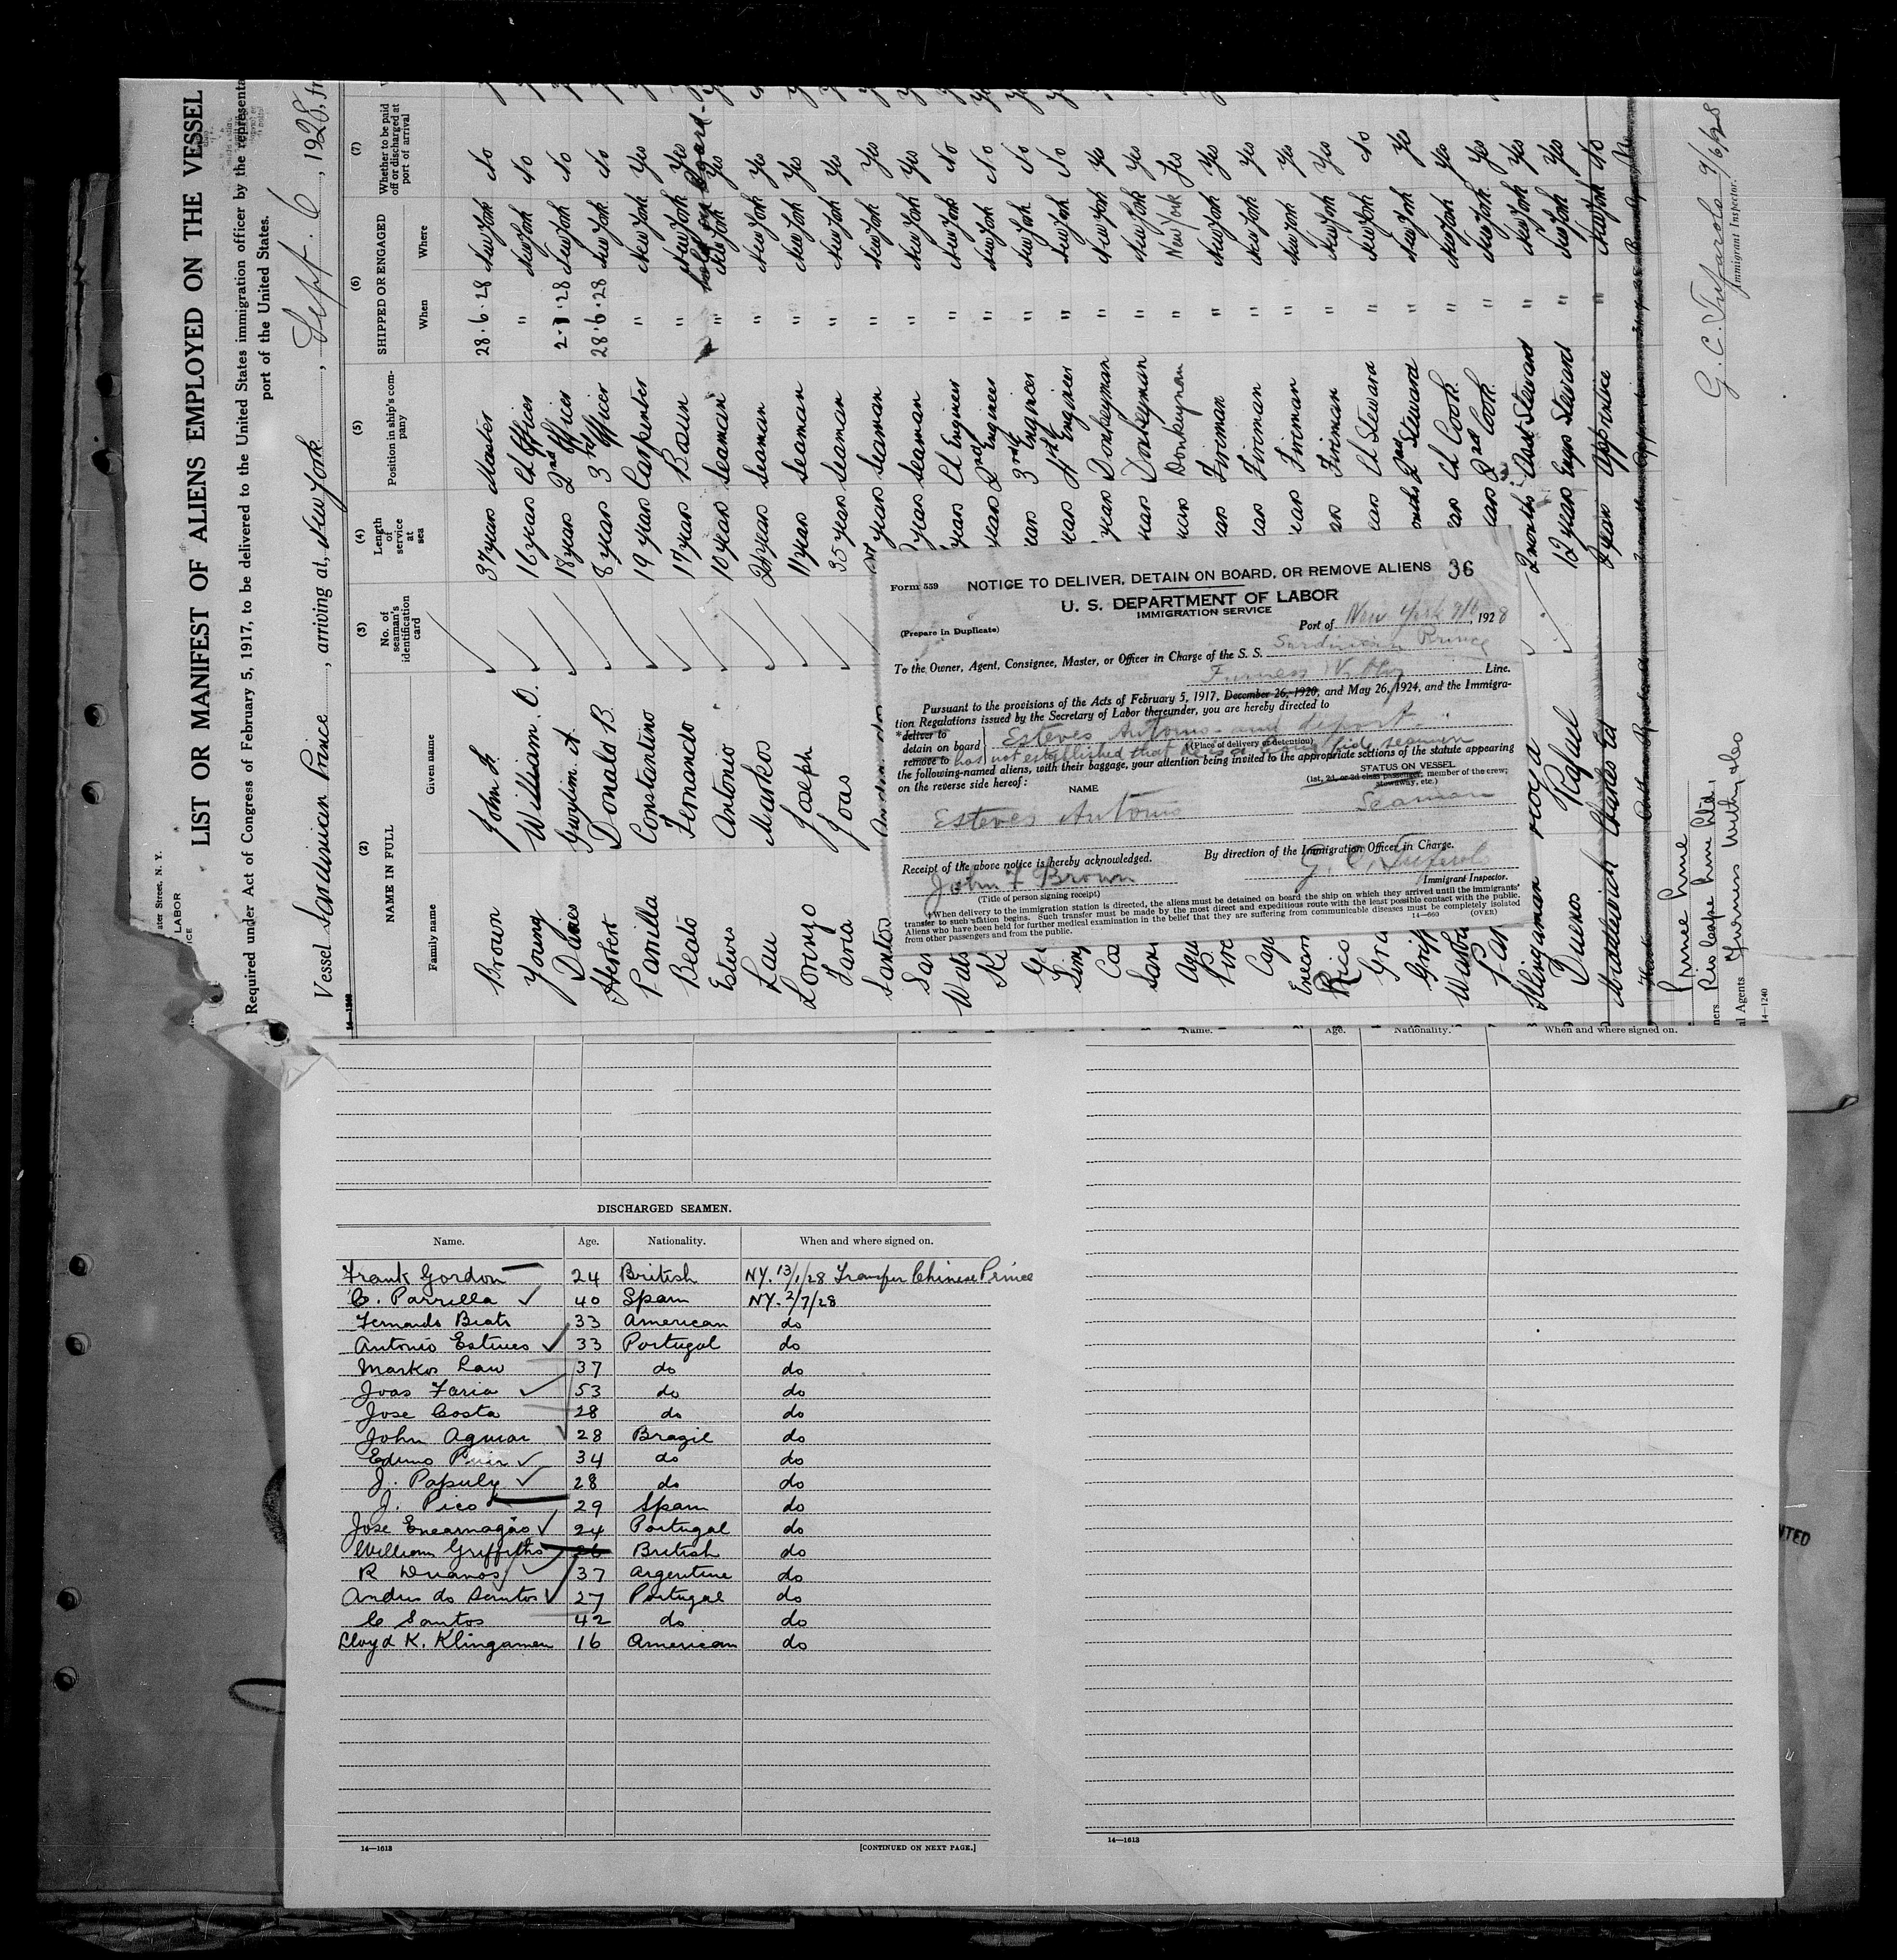 ater Street, N. Y.
LABOR
ICE
LIST OR MANIFEST OF ALIENS EMPLOYED ON THE VESSEL
Required under Act of Congress of February 5, 1917, to be delivered to the United States immigration officer by the representa
port of the United States.
Vessel Sardinian Prince, arriving at, New York, Sept. 6, 1928, fr
14—1240
(2) (3) (4) (5) (6) (7)
NAME IN FULL
Family name Given name
No. of seaman's identification card
Length of service at sea
Position in ship's company
SHIPPED OR ENGAGED
When Where
Whether to be paid off or discharged at port of arrival
Brown John F. 37 years Master 28.6.28 New York No
Young William O. 16 years Ch Officer " New York No
Davies Gwylim A. 18 years 2nd Officer 2.7.28 New York No
Herbert Donald B. 8 years 3rd Officer 28.6.28 New York No
Parrilla Constantino 19 years Carpenter " New York Yes
Beato Fernando 17 years Bosun " New York Yes
Hold on Board
Esteves Antonio 10 years Seaman " New York Yes
Lau Markos 20 years Seaman " New York Yes
Lorenzo Joseph 11 years Seaman " New York Yes
Faria Joas 35 years Seaman " New York Yes
Santos years Seaman " New York Yes
Sa years Seaman " New York Yes
Wats years Ch Engineer " New York No
years 2nd Engineer " New York No
ears 3rd Engineer " New York No
ears 4th Engineer " New York No
Co years Donkeyman " New York Yes
San ears Donkeyman " New York Yes
Agu years Donkeyman " New York Yes
ears Fireman " New York Yes
ears Fireman " New York Yes
Encar ears Fireman " New York Yes
Rico ars Fireman " New York Yes
Gra ears Ch Steward " New York No
Griff onths 2nd Steward " New York Yes
ears Ch Cook " New York Yes
ears 2nd Cook " New York Yes
Klingaman royd 2 months Asst Steward " New York Yes
Duenos Rafael 12 years Engs Steward " New York Yes
2 years Apprentice " New York No
Prince Line
ners Rio Cape Line Ltd.
al Agents Furness Withy & Co
14—1240
G. C. Tufarolo 9/6/28
Immigrant Inspector.
Form 559
NOTICE TO DELIVER, DETAIN ON BOARD, OR REMOVE ALIENS 36
U. S. DEPARTMENT OF LABOR
IMMIGRATION SERVICE
(Prepare in Duplicate)
Port of New York 9/6, 1928
To the Owner, Agent, Consignee, Master, or Officer in Charge of the S. S. Sardinian Prince
Furness Withy Line.
Pursuant to the provisions of the Acts of February 5, 1917, December 26, 1920, and May 26, 1924, and the Immigra-
tion Regulations issued by the Secretary of Labor thereunder, you are hereby directed to
*deliver to
detain on board
remove to
Esteves Antonio and deport.
†(Place of delivery or detention)
has not established that he is a bona fide seaman
the following-named aliens, with their baggage, your attention being invited to the appropriate sections of the statute appearing
on the reverse side hereof:
NAME
STATUS ON VESSEL
(1st, 2d, or 3d class passenger, member of the crew;
stowaway, etc.)
Esteves Antonio Seaman
Receipt of the above notice is hereby acknowledged.
By direction of the Immigration Officer in Charge.
John F Brown
G. C. Tufarolo
(Title of person signing receipt)
Immigrant Inspector.
†When delivery to the immigration station is directed, the aliens must be detained on board the ship on which they arrived until the immigrants'
transfer to such station begins. Such transfer must be made by the most direct and expeditious route with the least possible contact with the public.
Aliens who have been held for further medical examination in the belief that they are suffering from communicable diseases must be completely isolated
from other passengers and from the public.
14—660 (OVER)
Name. Age. Nationality. When and where signed on.
DISCHARGED SEAMEN.
Name. Age. Nationality. When and where signed on.
Frank Gordon 24 British NY. 13/1/28 Transfer Chinese Prince
C. Parrilla 40 Spain NY. 2/7/28
Fernando Beato 33 American do
Antonio Esteves 33 Portugal do
Markos Law 37 do do
Joas Faria 53 do do
Jose Costa 28 do do
John Aguiar 28 Brazil do
34 do do
J. Papuly 28 do do
J. Pico 29 Spain do
Jose Encarnação 24 Portugal do
William Griffiths 26 British do
R Duanos 37 Argentine do
Andre do Santos 27 Portugal do
C Santos 42 do do
Lloyd K. Klingamen 16 American do
14—1613
[CONTINUED ON NEXT PAGE.]
14—1613
NTED